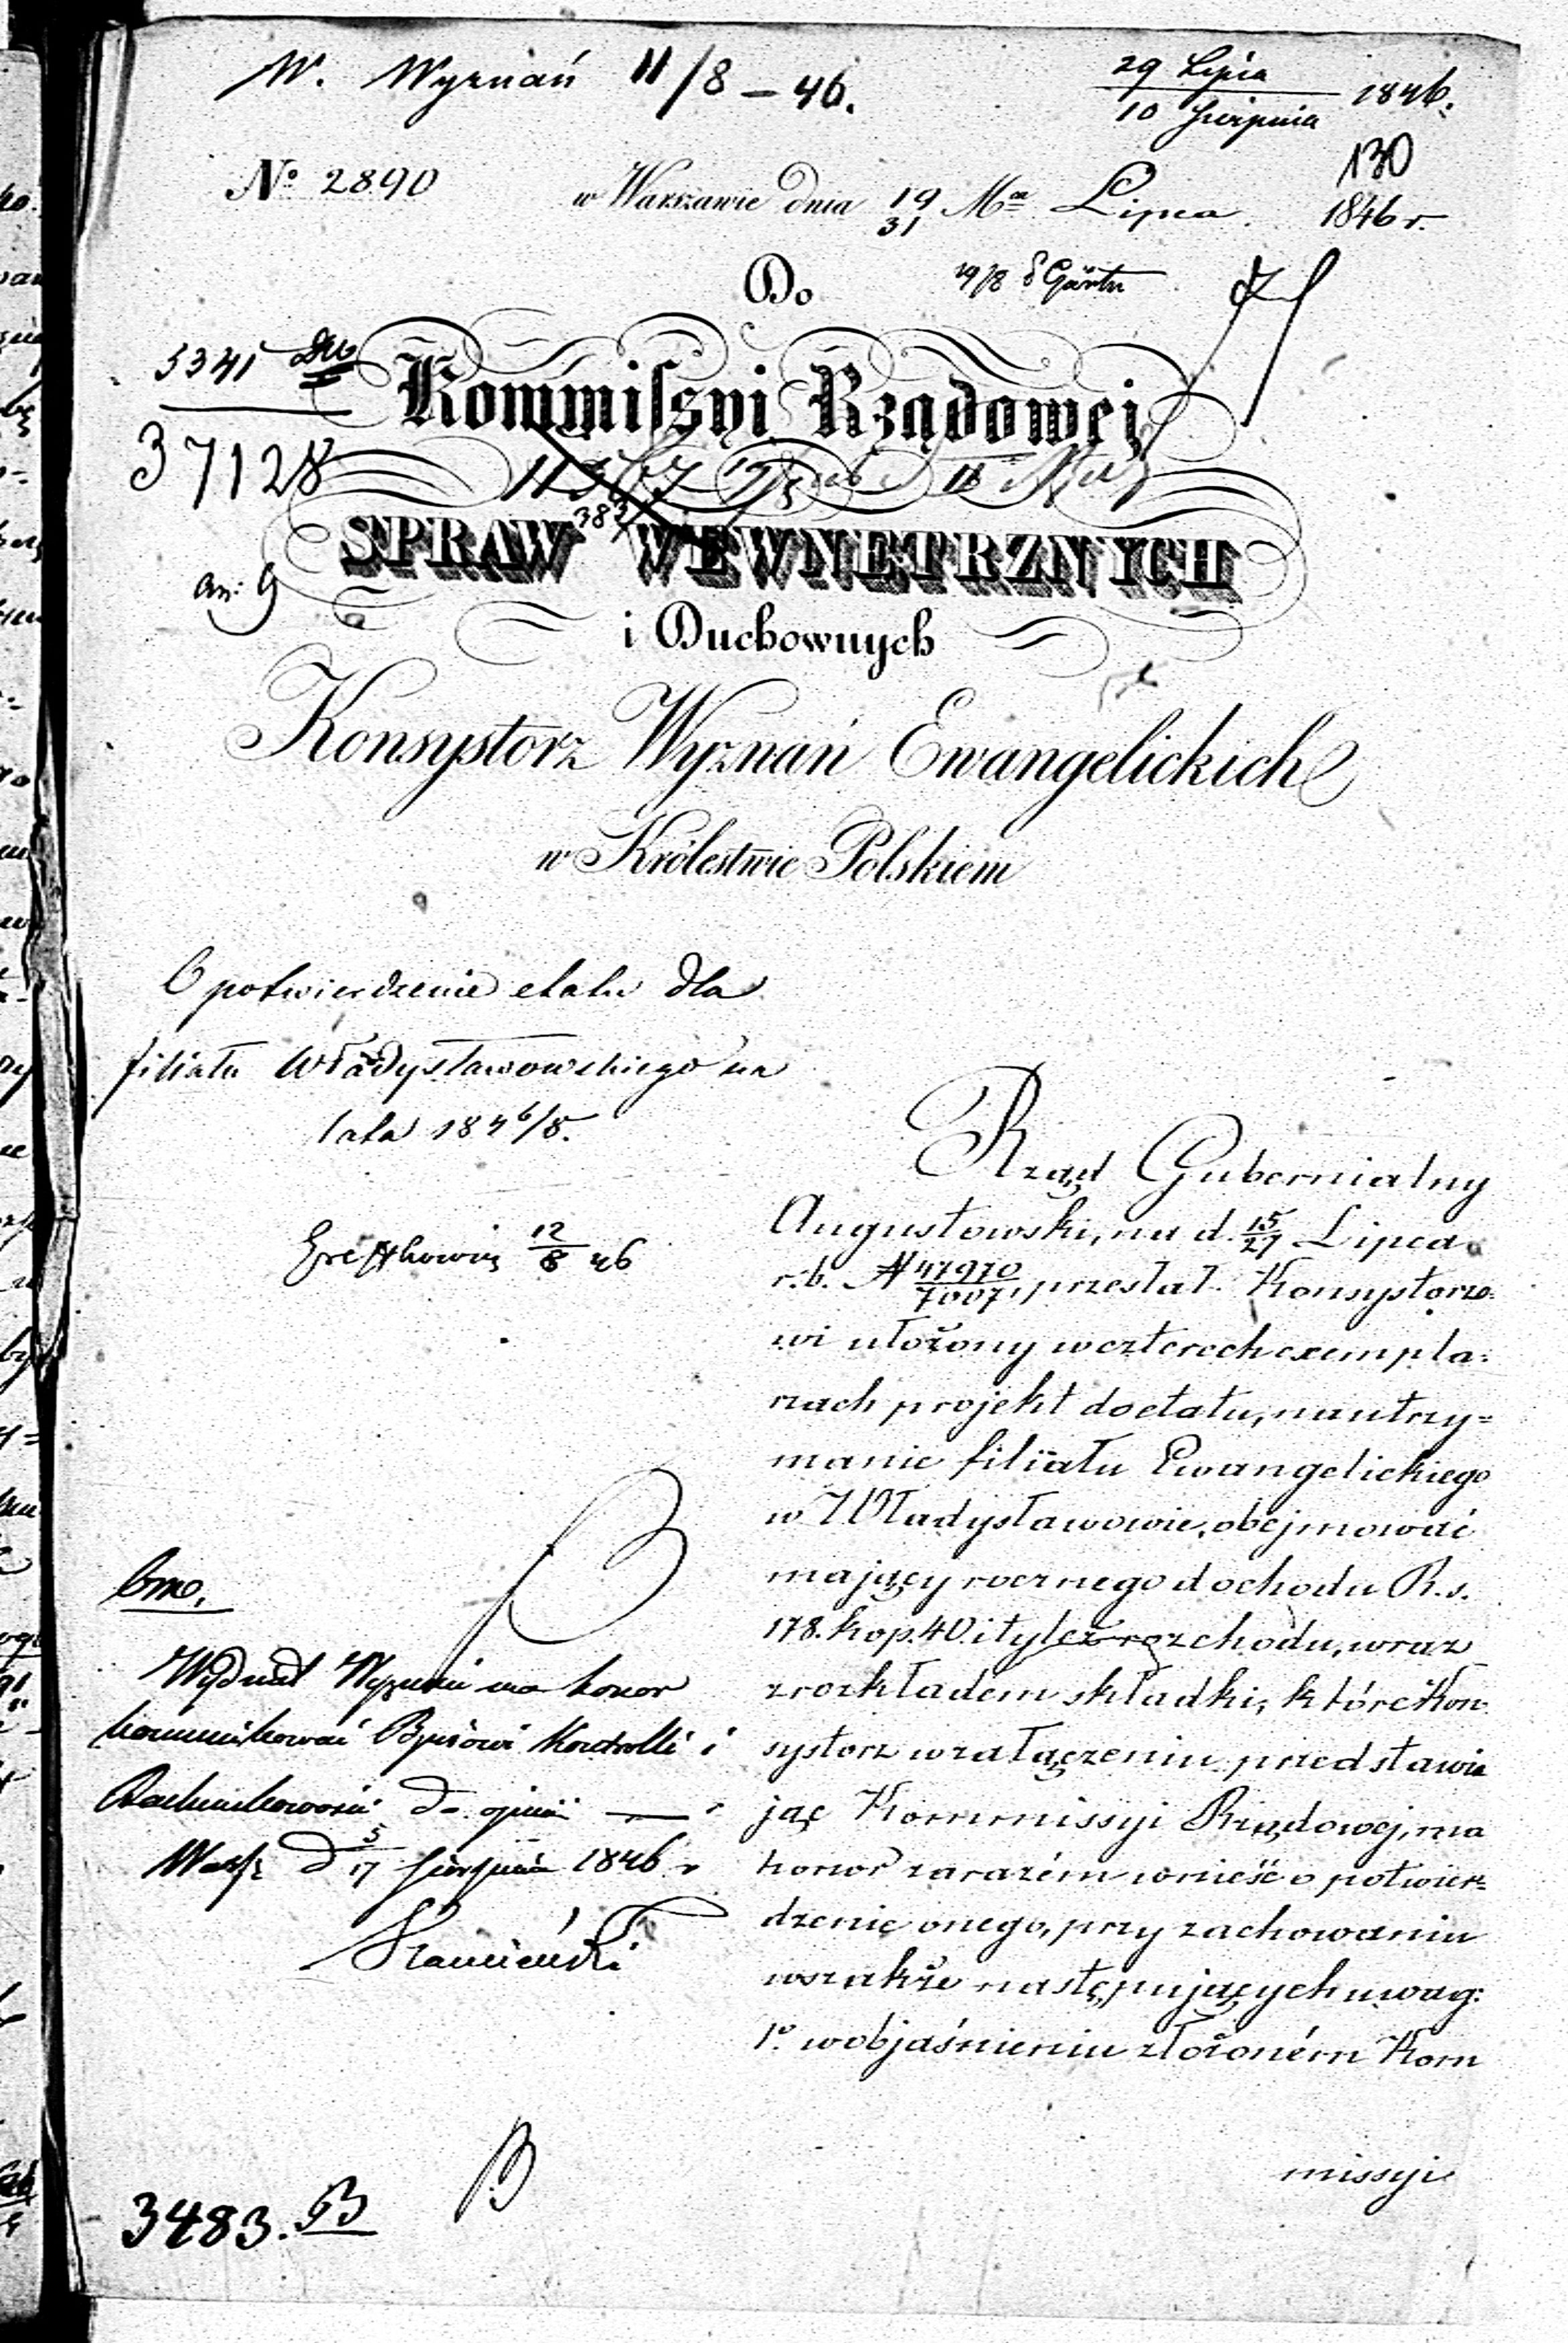 W. Wyznań 11/8 – 46.
29 Lipca
10 Sierpnia 1846.
130
No 2890 w Warszawie dnia 19/31 Ma Lipca 1846 r.
Do
19/8
5341
Kommissyi Rządowej
37128
SPRAW WEWNĘTRZNYCH
383
i Duchownych
Konsystorz Wyznań Ewangelickich
w Królestwie Polskiem
O potwierdzenie etatu dla
filiału Władysławowskiego na
lata 1846/8.
12/8 46
Rząd Gubernialny
Augustowski, na d. 15/27 Lipca
r. b. N 47970/7007, przesłał Konsystorzo-
wi ułożony w czterech exempla-
rzach projekt do etatu, na utrzy=
manie filiału Ewangelickiego
w Władysławowie, obejmować
mający rocznego dochodu R. s.
178. kop. 40. i tyleż rozchodu, wraz
z rozkładem składki; które Kon
systorz w załączeniu przedstawia
jąc Kommissyi Rządowej, ma
honor zarazém wnieść o potwier=
dzenie onego, przy zachowaniu
wszakże następujących uwag:
1o. w objaśnieniu złożoném Kom
missyi
Bmo.
Wydział Wyznań ma honor
kommunikować Bjurowi Kontrolli i
Rachunkowości do opinii
Warsz d 5/17 Sierpnia 1846 r
3483.